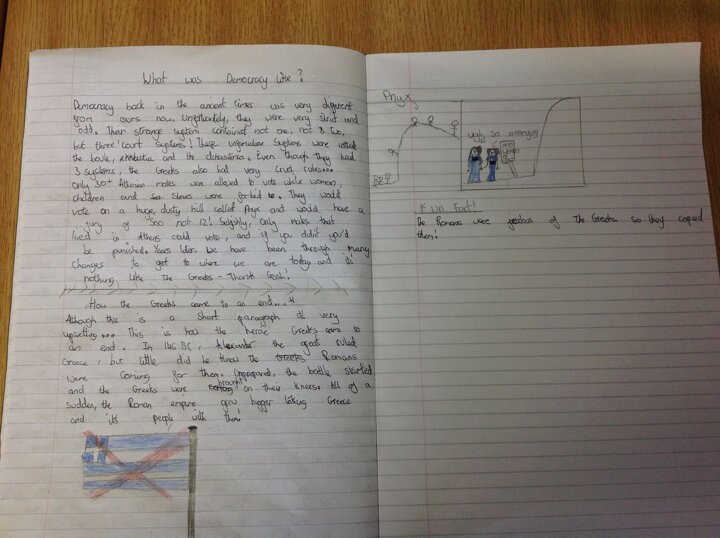 What was Democracy like?
Democracy back in the ancient times was very different
from ours now. Unfortunately, they were very strict and
odd. Their strange system contained not one, not two,
but three court systems! These unfamiliar systems were called
the boule, ekklesia and the dikasteria. Even though they had
3 systems, the Greeks also had very cruel rules...
Only 30+ Athenian males were allowed to vote while women,
children and slaves were forbid to. They would
vote on a huge, dusty hill called Pnyx and would have a
jury of 500 not 12! Selfishly, Only males that
lived in Athens could vote, and if you didn't you'd
be punished. Years later, we have been through many
changes to get to where we are today and it's
nothing like the Greeks - Thank Gosh!
How the Greeks came to an end...
Although this is a short paragraph it's very
upsetting... This is how the heroic Greeks came to
an end. In 146 BC, Alexander the great ruled
Greece, but little did he know the Romans
were coming for them. Unprepared, the battle started
and the Greeks were brought on their knees. All of a
sudden, the Roman empire grew bigger taking Greece
and it's people with them!
Pnyx
so annoying
NO
Fun Fact!
The Romans were jealous of The Greeks so they copied
them!